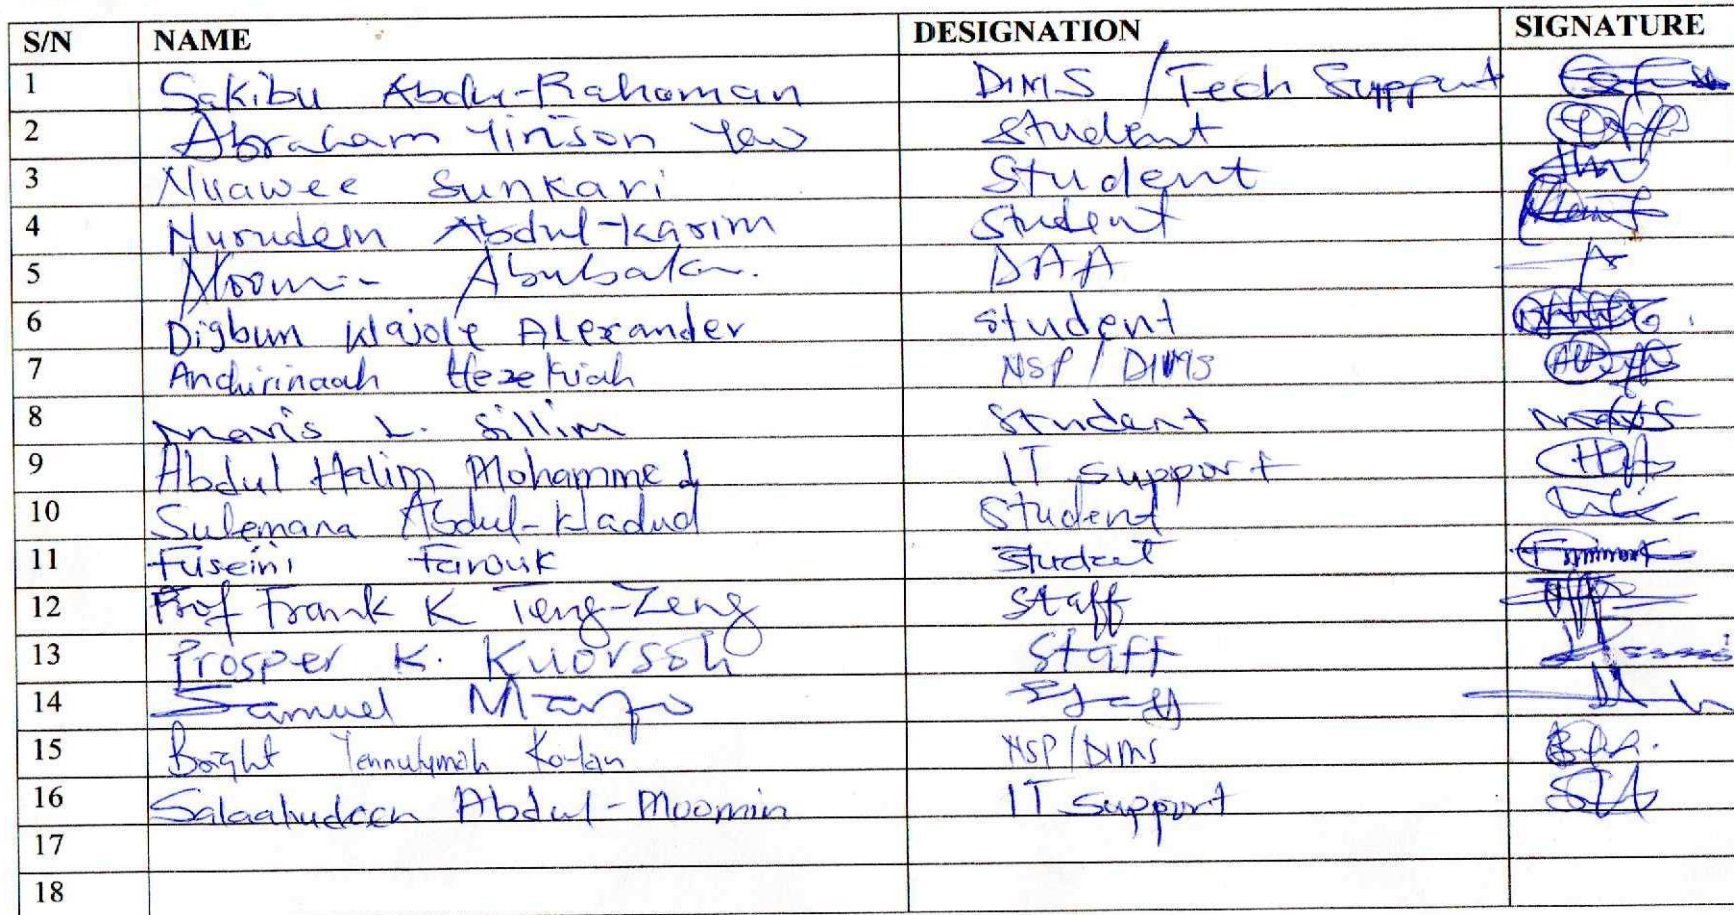 S/N NAME DESIGNATION SIGNATURE
1 Sakibu Abdu-Rahaman DIMS / Tech Support
2 Abraham Yinson Yaw Student
3 Nuawee Sunkari Student
4 Nurudeen Abdul-Karim Student
5 Moomin Abubakar. DAA
6 Digbun Alexander Student
7 Hezekiah NSP / DIMS
8 Mavis L. Sillim Student
9 Abdul Halim Mohammed IT support
10 Sulemana Abdul-Wadud Student
11 Fuseini Farouk Student
12 Prof Frank K Teng-Zeng Staff
13 Prosper K. Kuorsoh Staff
14 Samuel Marfo Staff
15 Bright NSP/DIMS
16 Salaahudeen Abdul-Moomin IT Support
17
18